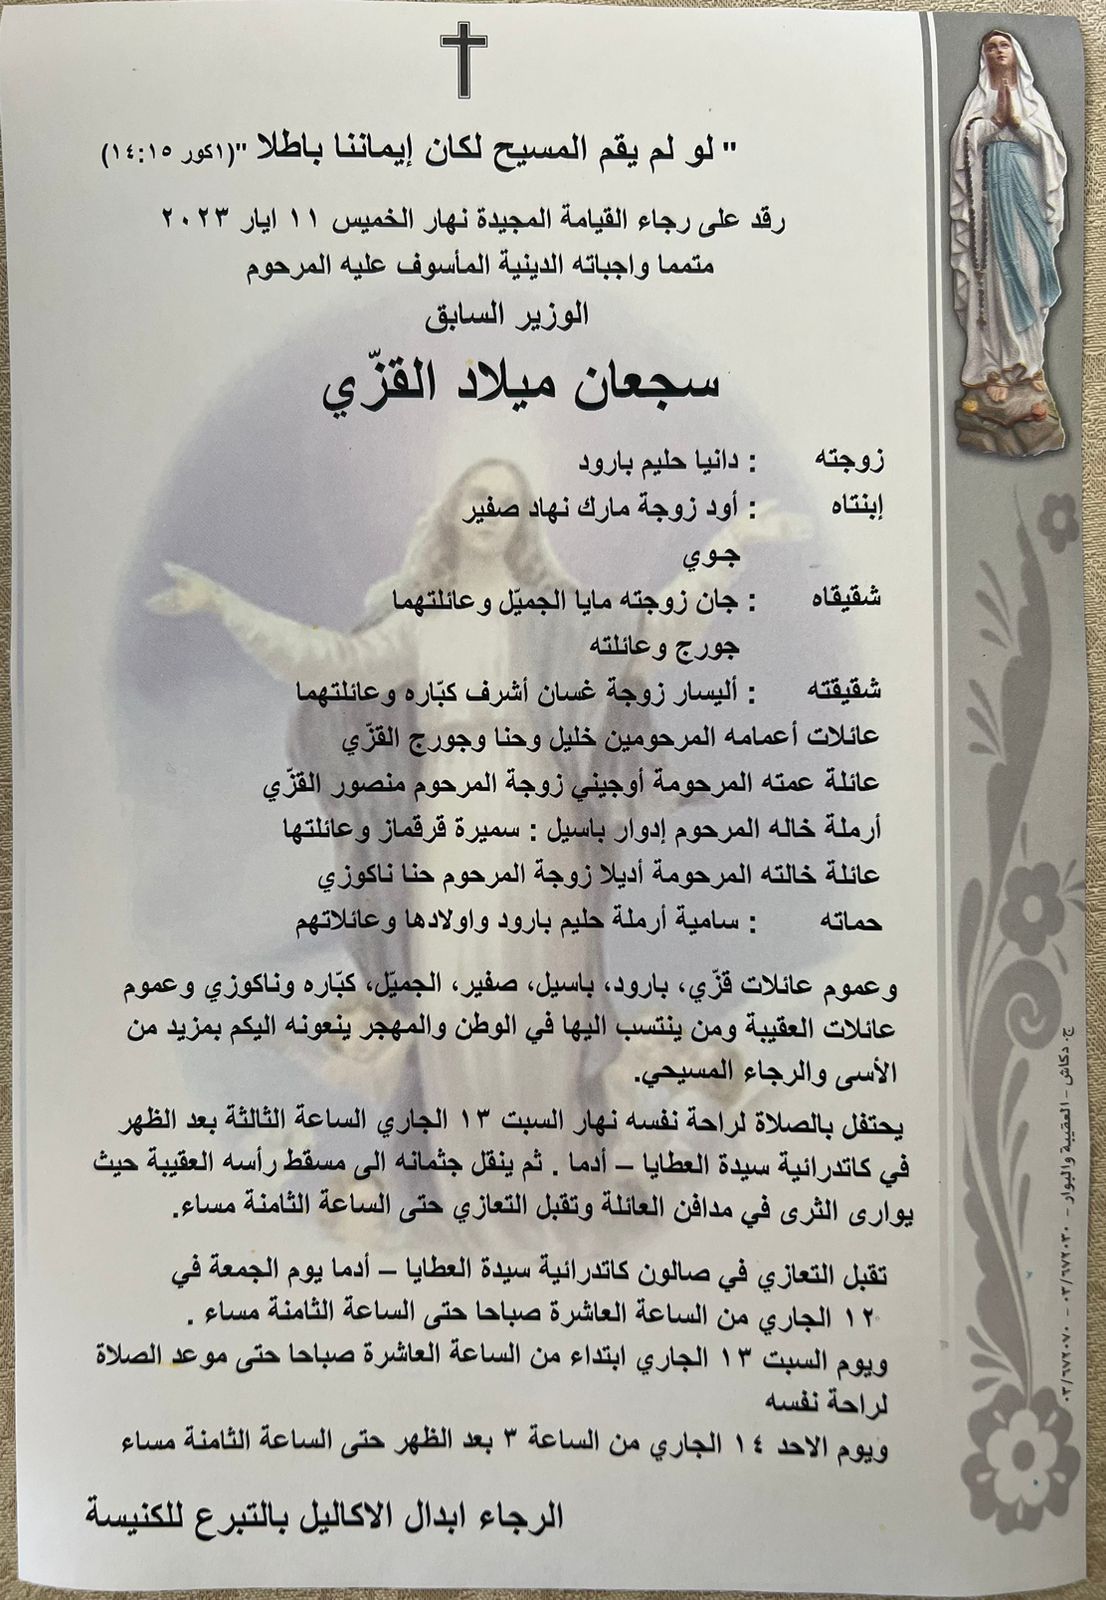 " لو لم يقم المسيح لكان إيماننا باطلا "(١كور ١٤:١٥)
رقد على رجاء القيامة المجيدة نهار الخميس ١١ ايار ٢٠٢٣
متمما واجباته الدينية المأسوف عليه المرحوم
الوزير السابق
سجعان ميلاد القزّي
زوجته : دانيا حليم بارود
إبنتاه : أود زوجة مارك نهاد صفير
جوي
شقيقاه : جان زوجته مايا الجميّل وعائلتهما
جورج وعائلته
شقيقته : أليسار زوجة غسان أشرف كبّاره وعائلتهما
عائلات أعمامه المرحومين خليل وحنا وجورج القزّي
عائلة عمته المرحومة أوجيني زوجة المرحوم منصور القزّي
أرملة خاله المرحوم إدوار باسيل : سميرة قرقماز وعائلتها
عائلة خالته المرحومة أديلا زوجة المرحوم حنا ناكوزي
حماته : سامية أرملة حليم بارود واولادها وعائلاتهم
وعموم عائلات قزّي، بارود، باسيل، صفير، الجميّل، كبّاره وناكوزي وعموم
عائلات العقيبة ومن ينتسب اليها في الوطن والمهجر ينعونه اليكم بمزيد من
الأسى والرجاء المسيحي.
يحتفل بالصلاة لراحة نفسه نهار السبت ١٣ الجاري الساعة الثالثة بعد الظهر
في كاتدرائية سيدة العطايا – أدما . ثم ينقل جثمانه الى مسقط رأسه العقيبة حيث
يوارى الثرى في مدافن العائلة وتقبل التعازي حتى الساعة الثامنة مساء.
تقبل التعازي في صالون كاتدرائية سيدة العطايا – أدما يوم الجمعة في
١٢ الجاري من الساعة العاشرة صباحا حتى الساعة الثامنة مساء .
ويوم السبت ١٣ الجاري ابتداء من الساعة العاشرة صباحا حتى موعد الصلاة
لراحة نفسه
ويوم الاحد ١٤ الجاري من الساعة ٣ بعد الظهر حتى الساعة الثامنة مساء
الرجاء ابدال الاكاليل بالتبرع للكنيسة
ج. دكاش – العقيبة والبوار – ٠٣/٦٧٢٠٣٠ – ٠٣/٦٧٢٠٧٠